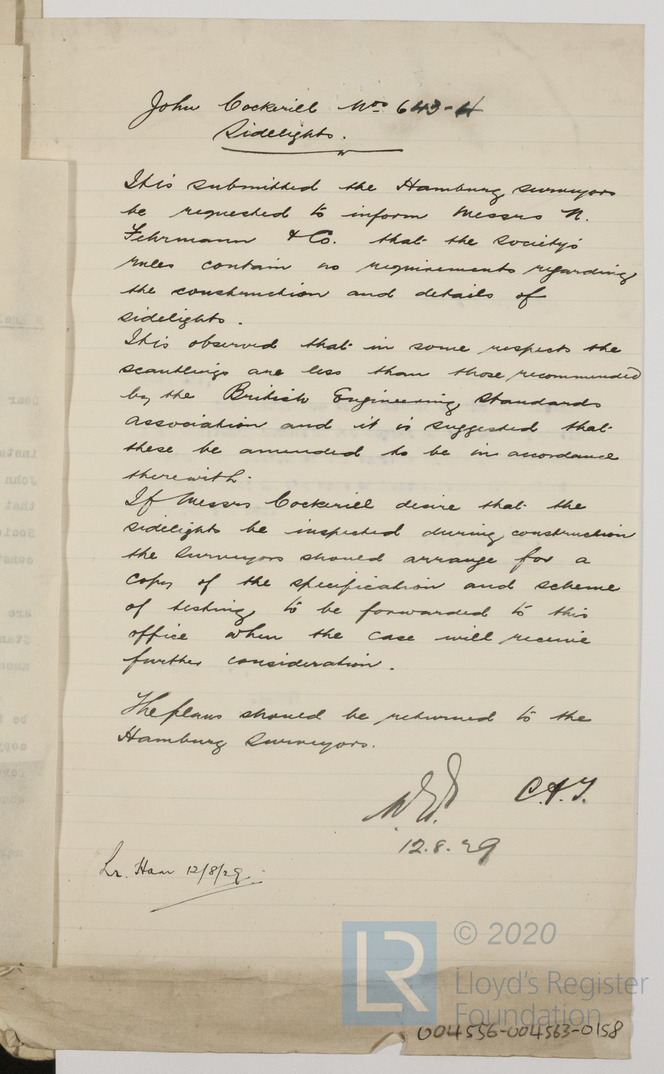 John Cockerill Nos 643-4
Sidelights.
It is submitted the Hamburg surveyors
be requested to inform Messrs N.
Fehrmann & Co. that the Society's
rules contain no requirements regarding
the construction and details of
sidelights.
It is observed that in some respects the
scantlings are less than those recommended
by the British Engineering Standards
Association and it is suggested that
these be amended to be in accordance
therewith.
If Messrs Cockerill desire that the
sidelights be inspected during construction
the Surveyors should arrange for a
copy of the specification and scheme
of testing to be forwarded to this
office when the case will receive
further consideration.
The plans should be returned to the
Hamburg Surveyors.
12.8.29
Lr. Ham 12/8/29.
LR
© 2020
Lloyd's Register
Foundation
004556-004563-0158